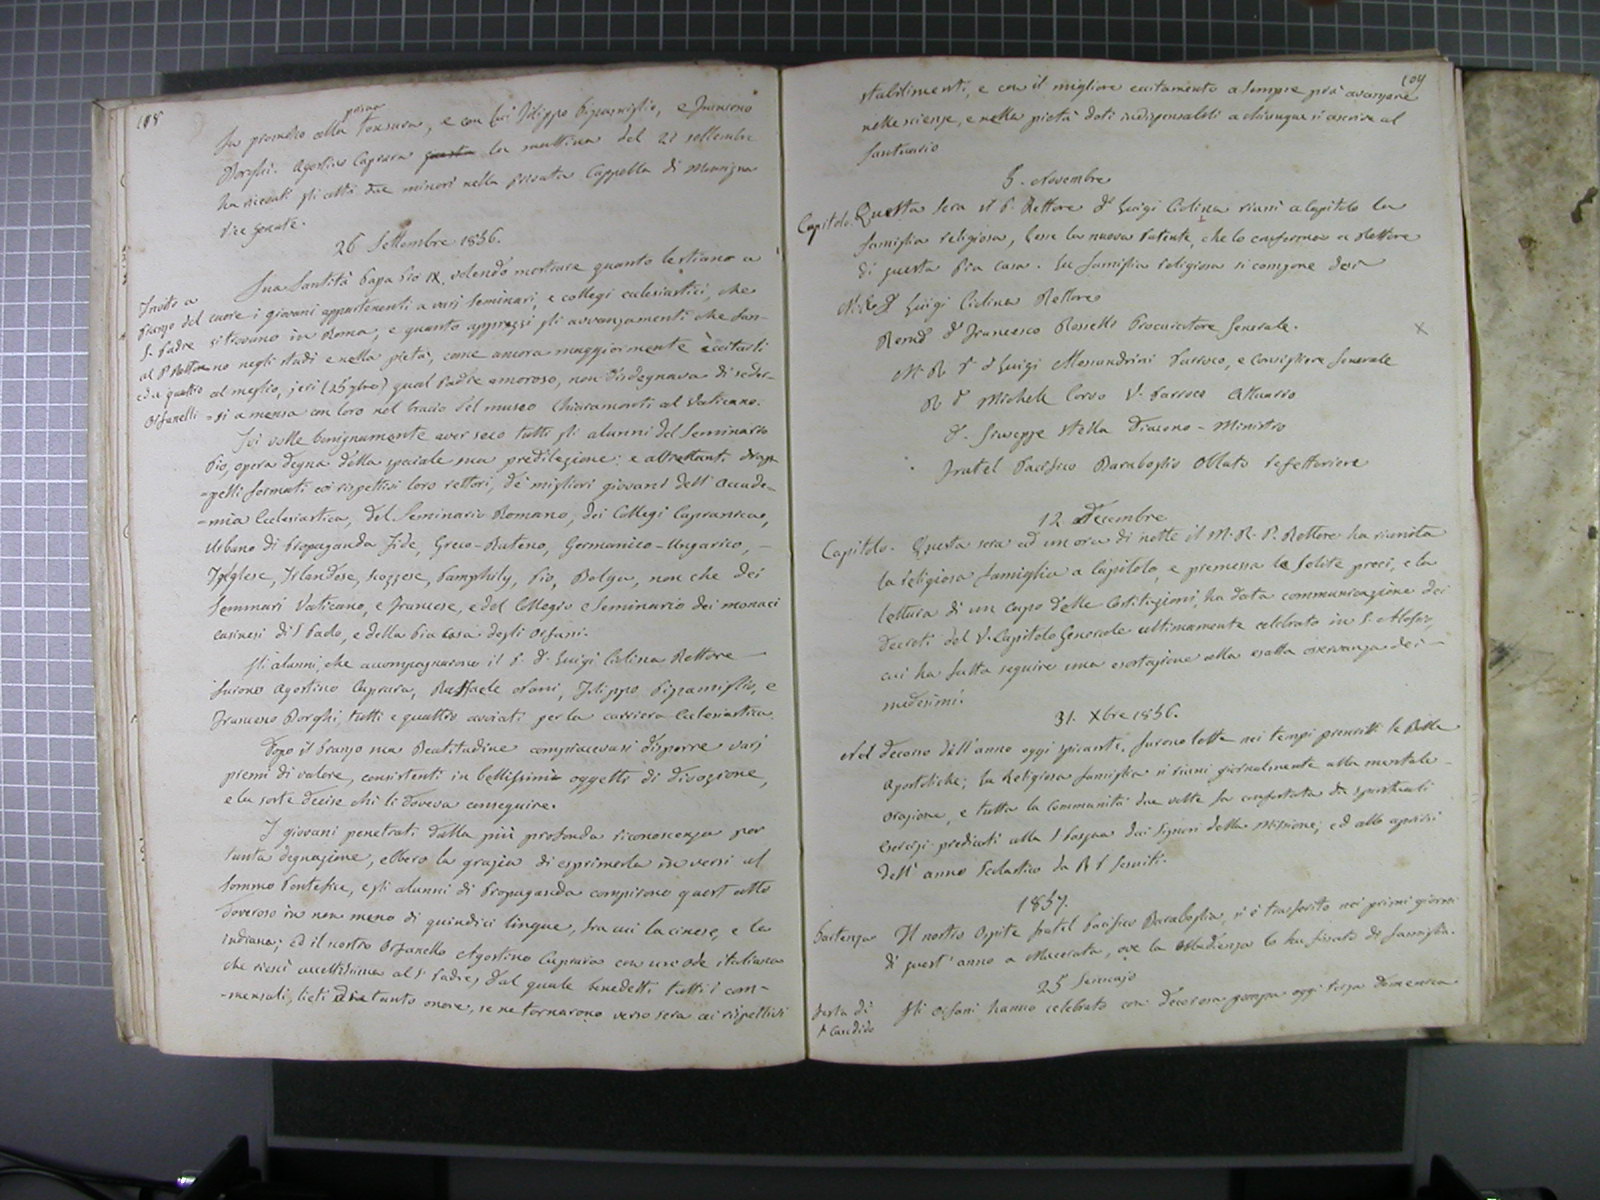 108
prima
fu promosso alla Tonsura, e con lui Filippo Pizzamiglio, e Francesco
Borghi. Agostino Caprara la mattina del 21 settembre
ha ricevuti gli altri due minori nella privata Cappella di Monsignor
Vice Gerente.
26 Settembre 1856.
Invito a pranzo del S. Padre al P. Rettore ed a quattro Orfanelli
Sua Santità Papa Pio IX, volendo mostrare quanto le stiano a
cuore i giovani appartenenti a varj Seminari, e collegi ecclesiastici, che
si trovano in Roma, e quanto apprezzi gli avvanzamenti che fan-
no negli studi e nella pietà, come ancora maggiormente eccitarli
al meglio, jeri (25 7bre) qual Padre amoroso, non disdegnava di seder-
-si a mensa con loro nel braccio del museo Chiaramonti al Vaticano.
Ivi volle benignamente aver seco tutti gli alunni del Seminario
Pio, opera degna della speciale sua predilezione: e altrettanti drap-
-pelli formati coi rispettivi loro rettori, de' migliori giovani dell'Accade-
-mia Ecclesiastica, del Seminario Romano, dei Collegi Capranica,
Urbano di Propaganda Fide, Greco-Ruteno, Germanico-Ungarico,
Inglese, Irlandese, Scozzese, Pamphily, Pio, Belga, non che dei
Seminari Vaticano, e Francese, e del Collegio e Seminario dei monaci
casinesi di S. Paolo, e della Pia Casa degli Orfani.
Gli alunni, che accompagnarono il P. D. Luigi Cidina Rettore
furono Agostino Caprara, Raffaele Nani, Filippo Pizzamiglio, e
Francesco Borghi, tutti e quattro avviati per la carriera Ecclesiastica.
Dopo il pranzo sua Beatitudine compiacevasi disporre varj
premi di valore, consistenti in bellissimi oggetti di divozione,
e la sorte decise chi li doveva conseguire.
I giovani penetrati dalla più profonda riconoscenza per
tanta degnazione, ebbero la grazia di esprimerla in versi al
Sommo Pontefice, e gli alunni di Propaganda compirono quest'atto
doveroso in non meno di quindici lingue, fra cui la cinese, e la
indiana; ed il nostro Orfanello Agostino Caprara con una ode italiana
che riescì accettissima al S. Padre, dal quale benedetti tutti i com-
-mensali, lieti di tanto onore, se ne tornarono verso sera ai rispettivi
109
stabilimenti, e con il migliore eccitamento a sempre più avanzare
nelle scienze, e nella pietà doti indispensabili a chiunque si ascrive al
Santuario
5. Novembre
Capitolo. Questa sera il P. Rettore D. Luigi Cidina riunì a Capitolo la
famiglia religiosa, lesse la nuova Patente, che lo conferma a Rettore
di questa Pia Casa. La famiglia religiosa si compone dei
M. R. P. D. Luigi Cidina Rettore
Rend. D. Francesco Rosselli Procuratore Generale.
M. R. P. D. Luigi Alessandrini Parroco, e Consigliere Generale
R. D. Michele Corvo V. Parroco Attuario
D. Giuseppe Stella Diacono - Ministro
Fratel Pacifico Baraboglia Oblato refettoriere
12 Decembre
Capitolo. Questa sera ad un'ora di notte il M. R. P. Rettore ha riunita
la religiosa famiglia a Capitolo, e premessa le solite preci, e la
lettura di un capo delle Costituzioni, ha data communicazione dei
Decreti del V. Capitolo Generale ultimamente celebrato in S. Alessio,
cui ha fatta seguire una esortazione alla esatta osservanza dei
medesimi.
31. Xbre 1856.
Nel decorso dell'anno oggi spirante, furono lette nei tempi prescritti le Bolle
Apostoliche; la Religiosa famiglia si riunì giornalmente alla mentale
orazione, e tutta la Communità due volte fu confortata da spirituali
Esercizi predicati alla S. Pasqua dai Signori della Missione, ed allo aprirsi
dell'anno Scolastico da RR. PP. Gesuiti.
1857.
Partenza Il nostro Ospite fratel Pacifico Baraboglia, si è trasferito nei primi giorni
di quest'anno a Macerata, ove la Obbedienza lo ha fissato di famiglia.
25 Gennajo
Festa di S. Candido Gli Orfani hanno celebrato con decorosa pompa oggi terza domenica